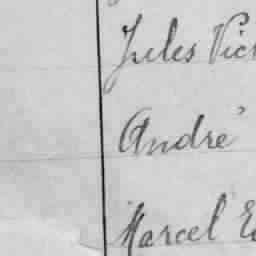 Jules Vic
André
Marcel E